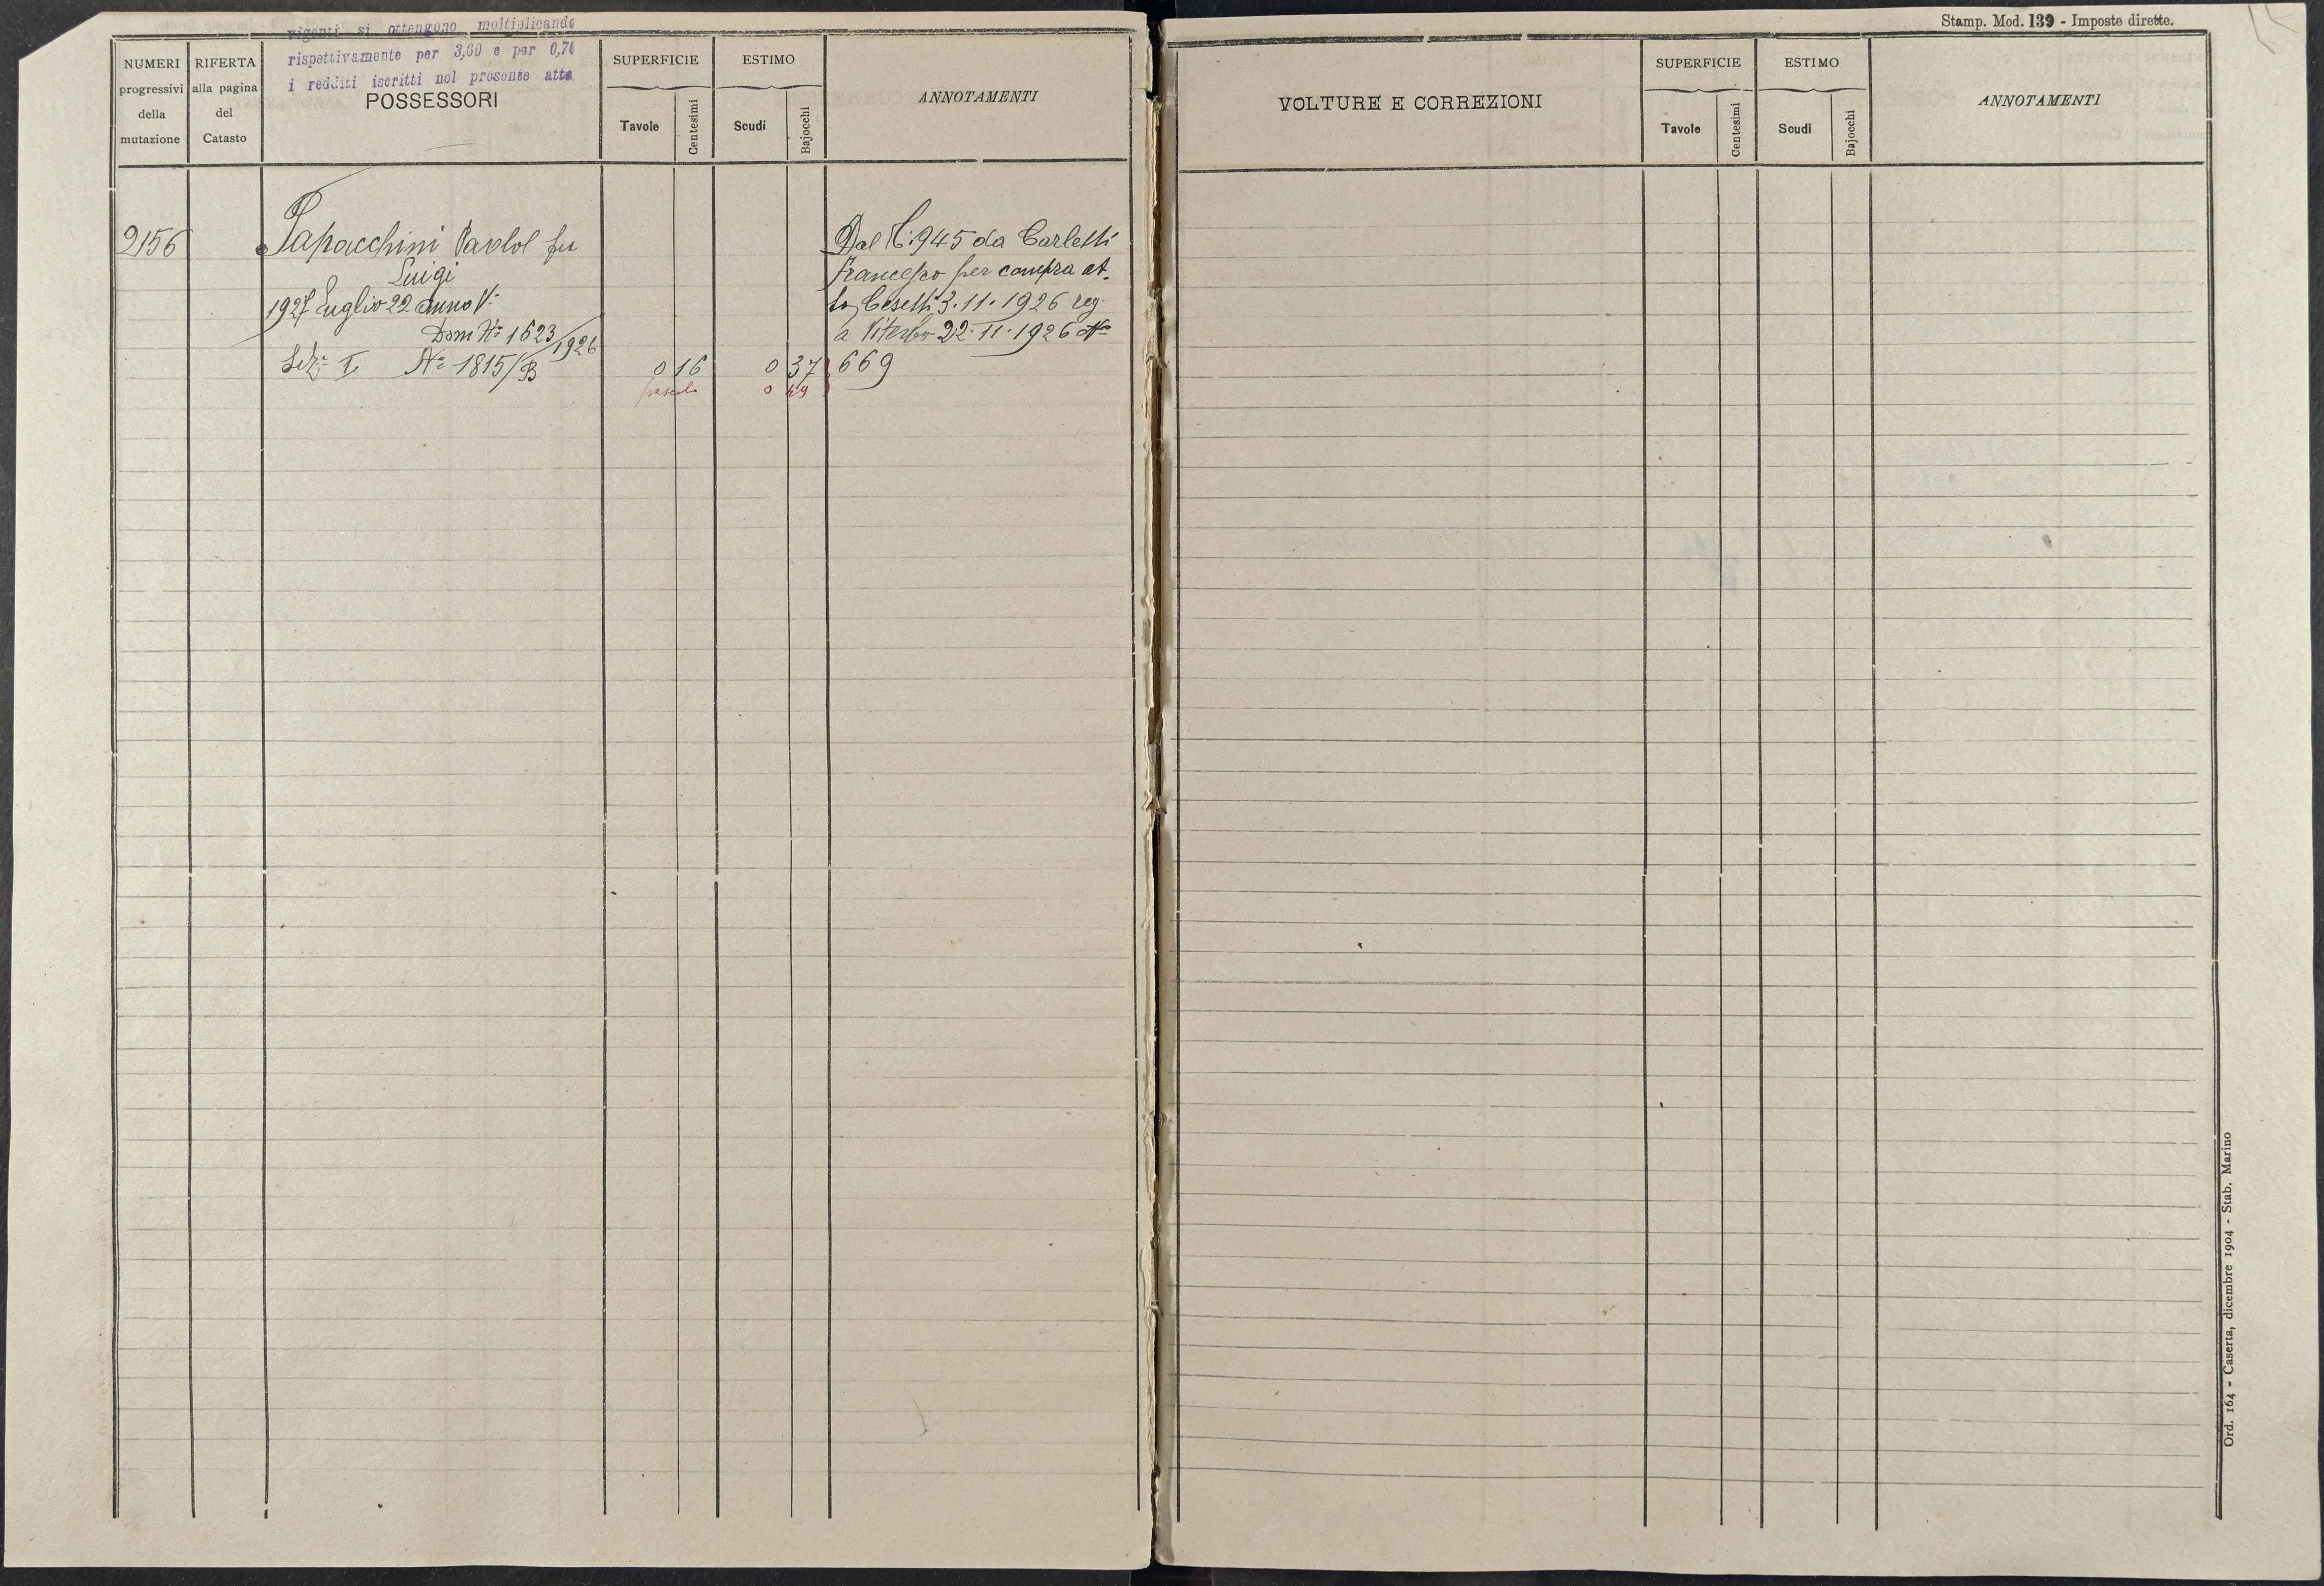 vigenti si ottengono moltiplicando
rispettivamente per 3,60 e per 0,74
i redditi iscritti nel presente atto
NUMERI
progressivi
della
mutazione
RIFERTA
alla pagina
del
Catasto
POSSESSORI
SUPERFICIE
Tavole
Centesimi
ESTIMO
Scudi
Bajocchi
ANNOTAMENTI
2156
Papacchini Paolol fu
Luigi
1927 Luglio 22 anno V:
Dom N° 1623/1926
Sez: I. N° 1815/B
0 16
0 37
0 49
Dal C: 945 da Carletti
Francesco per compra at-
to Cesetti 3.11.1926 reg.
a Viterbo 22.11.1926 N°
669
Stamp. Mod. 139 - Imposte dirette.
VOLTURE E CORREZIONI
SUPERFICIE
Tavole
Centesimi
ESTIMO
Scudi
Bajocchi
ANNOTAMENTI
Ord. 164 - Caserta, dicembre 1904 - Stab. Marino